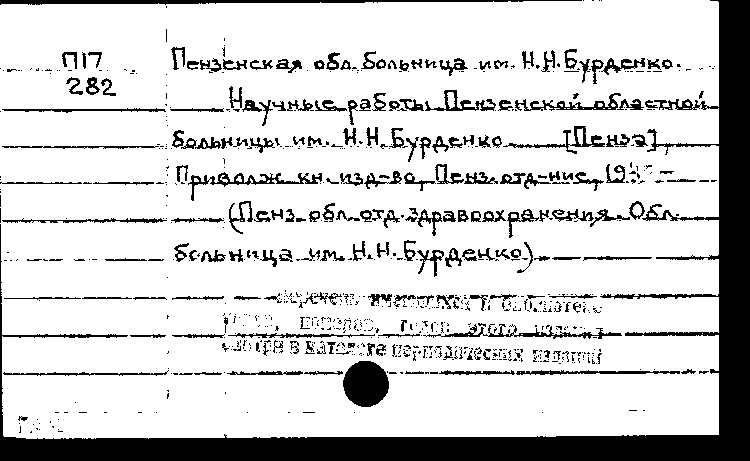 П17
282
Пензенская обл. больница им. Н.Н.Бурденко.
Научные работы Пензенской областной
больницы им. Н.Н.Бурденко [Пенза],
Приволж. кн. изд-во, Пенз. отд-ние,
(Пенз. обл. отд. здравоохранения. Обл.
больница им. Н.Н.Бурденко)
Перечень имеющихся в библиотеке
томов, номеров, годов этого издания
смотри в каталоге периодических изданий